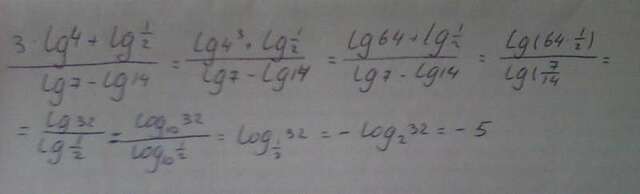 (3·lg4 + lg 1/2)/(lg7 - lg14) = (lg4³ + lg 1/2)/(lg7 - lg14) = (lg64 + lg 1/2)/(lg7 - lg14) = (lg(64·1/2))/(lg(7/14) =
= (lg32)/(lg 1/2) = (log₁₀32)/(log₁₀ 1/2) = log_{1/2}32 = -log₂32 = -5